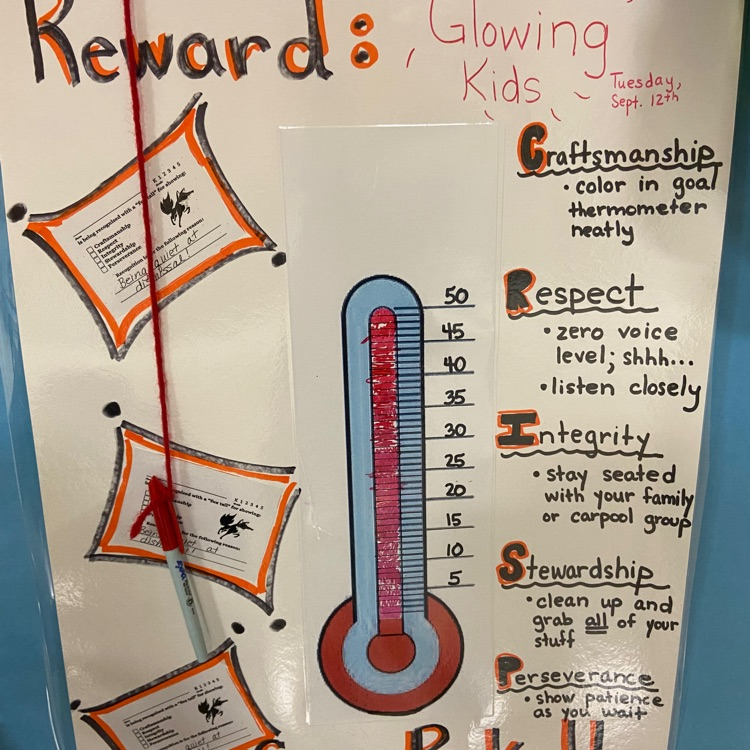 Reward:
Glowing
Kids
Tuesday,
Sept. 12th
K 1 2 3 4 5
is being recognized with a "fox tail" for showing:
Craftsmanship
Respect
Integrity
Stewardship
Perseverance
Recognition for the following reason:
Being quiet at
dismissal!
K 1 2 3 4 5
recognized with a "fox tail" for showing:
for the following reason:
at
K 1 2 3 4 5
is being recognized with a "fox tail" for showing:
Craftsmanship
Respect
Integrity
Stewardship
quiet at
50
45
40
35
30
25
20
15
10
5
Craftsmanship
• color in goal
thermometer
neatly
Respect
• zero voice
level; shhh...
• listen closely
Integrity
• stay seated
with your family
or carpool group
Stewardship
• clean up and
grab all of your
stuff
Perseverance
• show patience
as you wait